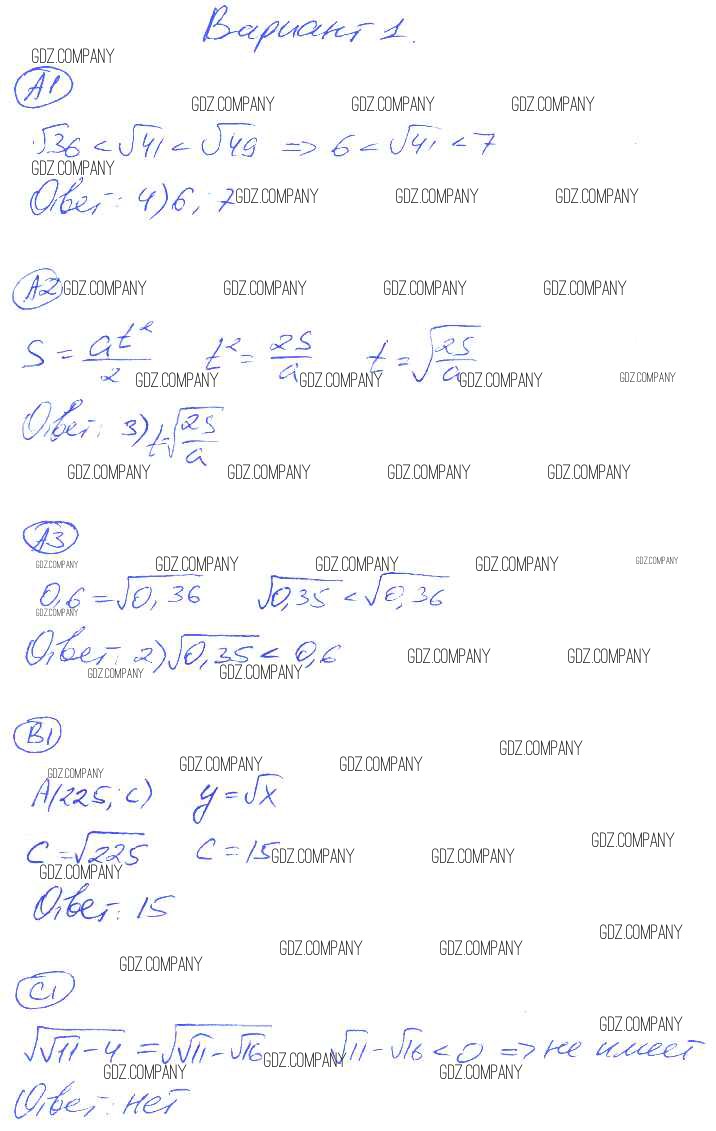 Вариант 1.
GDZ.COMPANY
А1
GDZ.COMPANY GDZ.COMPANY GDZ.COMPANY
√36 < √41 < √49 => 6 < √41 < 7
GDZ.COMPANY
Ответ: 4) 6; 7 GDZ.COMPANY GDZ.COMPANY GDZ.COMPANY
А2 GDZ.COMPANY GDZ.COMPANY GDZ.COMPANY GDZ.COMPANY
S = at²/2 t² = 2S/a t = √(2S/a)
GDZ.COMPANY GDZ.COMPANY GDZ.COMPANY GDZ.COMPANY
Ответ: 3) t=√(2S/a)
GDZ.COMPANY GDZ.COMPANY GDZ.COMPANY GDZ.COMPANY
А3
GDZ.COMPANY GDZ.COMPANY GDZ.COMPANY GDZ.COMPANY GDZ.COMPANY
0,6 = √0,36 √0,35 < √0,36
GDZ.COMPANY
Ответ: 2) √0,35 < 0,6 GDZ.COMPANY GDZ.COMPANY
GDZ.COMPANY GDZ.COMPANY
В1
GDZ.COMPANY
GDZ.COMPANY GDZ.COMPANY GDZ.COMPANY
A(225; c) y = √x
GDZ.COMPANY
C = √225 C = 15 GDZ.COMPANY GDZ.COMPANY
GDZ.COMPANY
Ответ: 15
GDZ.COMPANY
GDZ.COMPANY GDZ.COMPANY
GDZ.COMPANY
С1
GDZ.COMPANY
√(√11 - 4) = √(√11 - √16) √11 - √16 < 0 => не имеет
GDZ.COMPANY
GDZ.COMPANY GDZ.COMPANY
Ответ: нет